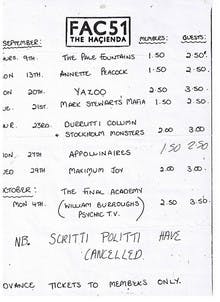 FAC51
THE HAÇIENDA
SEPTEMBER: MEMBERS: GUESTS:
URS. 9TH. THE PALE FOUNTAINS 1.50 2.50
ON 13TH. ANNETTE PEACOCK 1.50 2.50
ON 20TH. YAZOO 2.50 3.50
UE. 21ST. MARK STEWARTS MAFIA 1.50 2.50
UR. 23RD. DURUTTI COLUMN + STOCKHOLM MONSTERS 2.00 3.00
ON. 27TH APPOLLINAIRES 1.50 2.50
ED 29TH MAXIMUM JOY 2.00 3.00
KTOBER: THE FINAL ACADEMY
MON 4TH. (WILLIAM BURROUGHS 2.50 3.50
PSYCHIC TV.)
NB. SCRITTI POLITTI HAVE
CANCELLED.
DVANCE TICKETS TO MEMBERS ONLY.